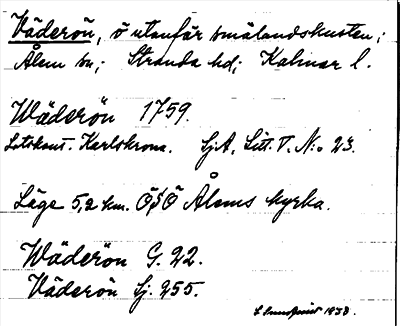 Väderön, ö utanför smålandskusten;
Ålem sn; Stranda hd; Kalmar l.
Wäderön 1759.
Lotskont. Karlskrona. SjA, Litt. V. N:o 23.
Läge 5,2 km. ÖSÖ Ålems kyrka.
Wäderön G. 22.
Väderön Sj. 255.
1938.